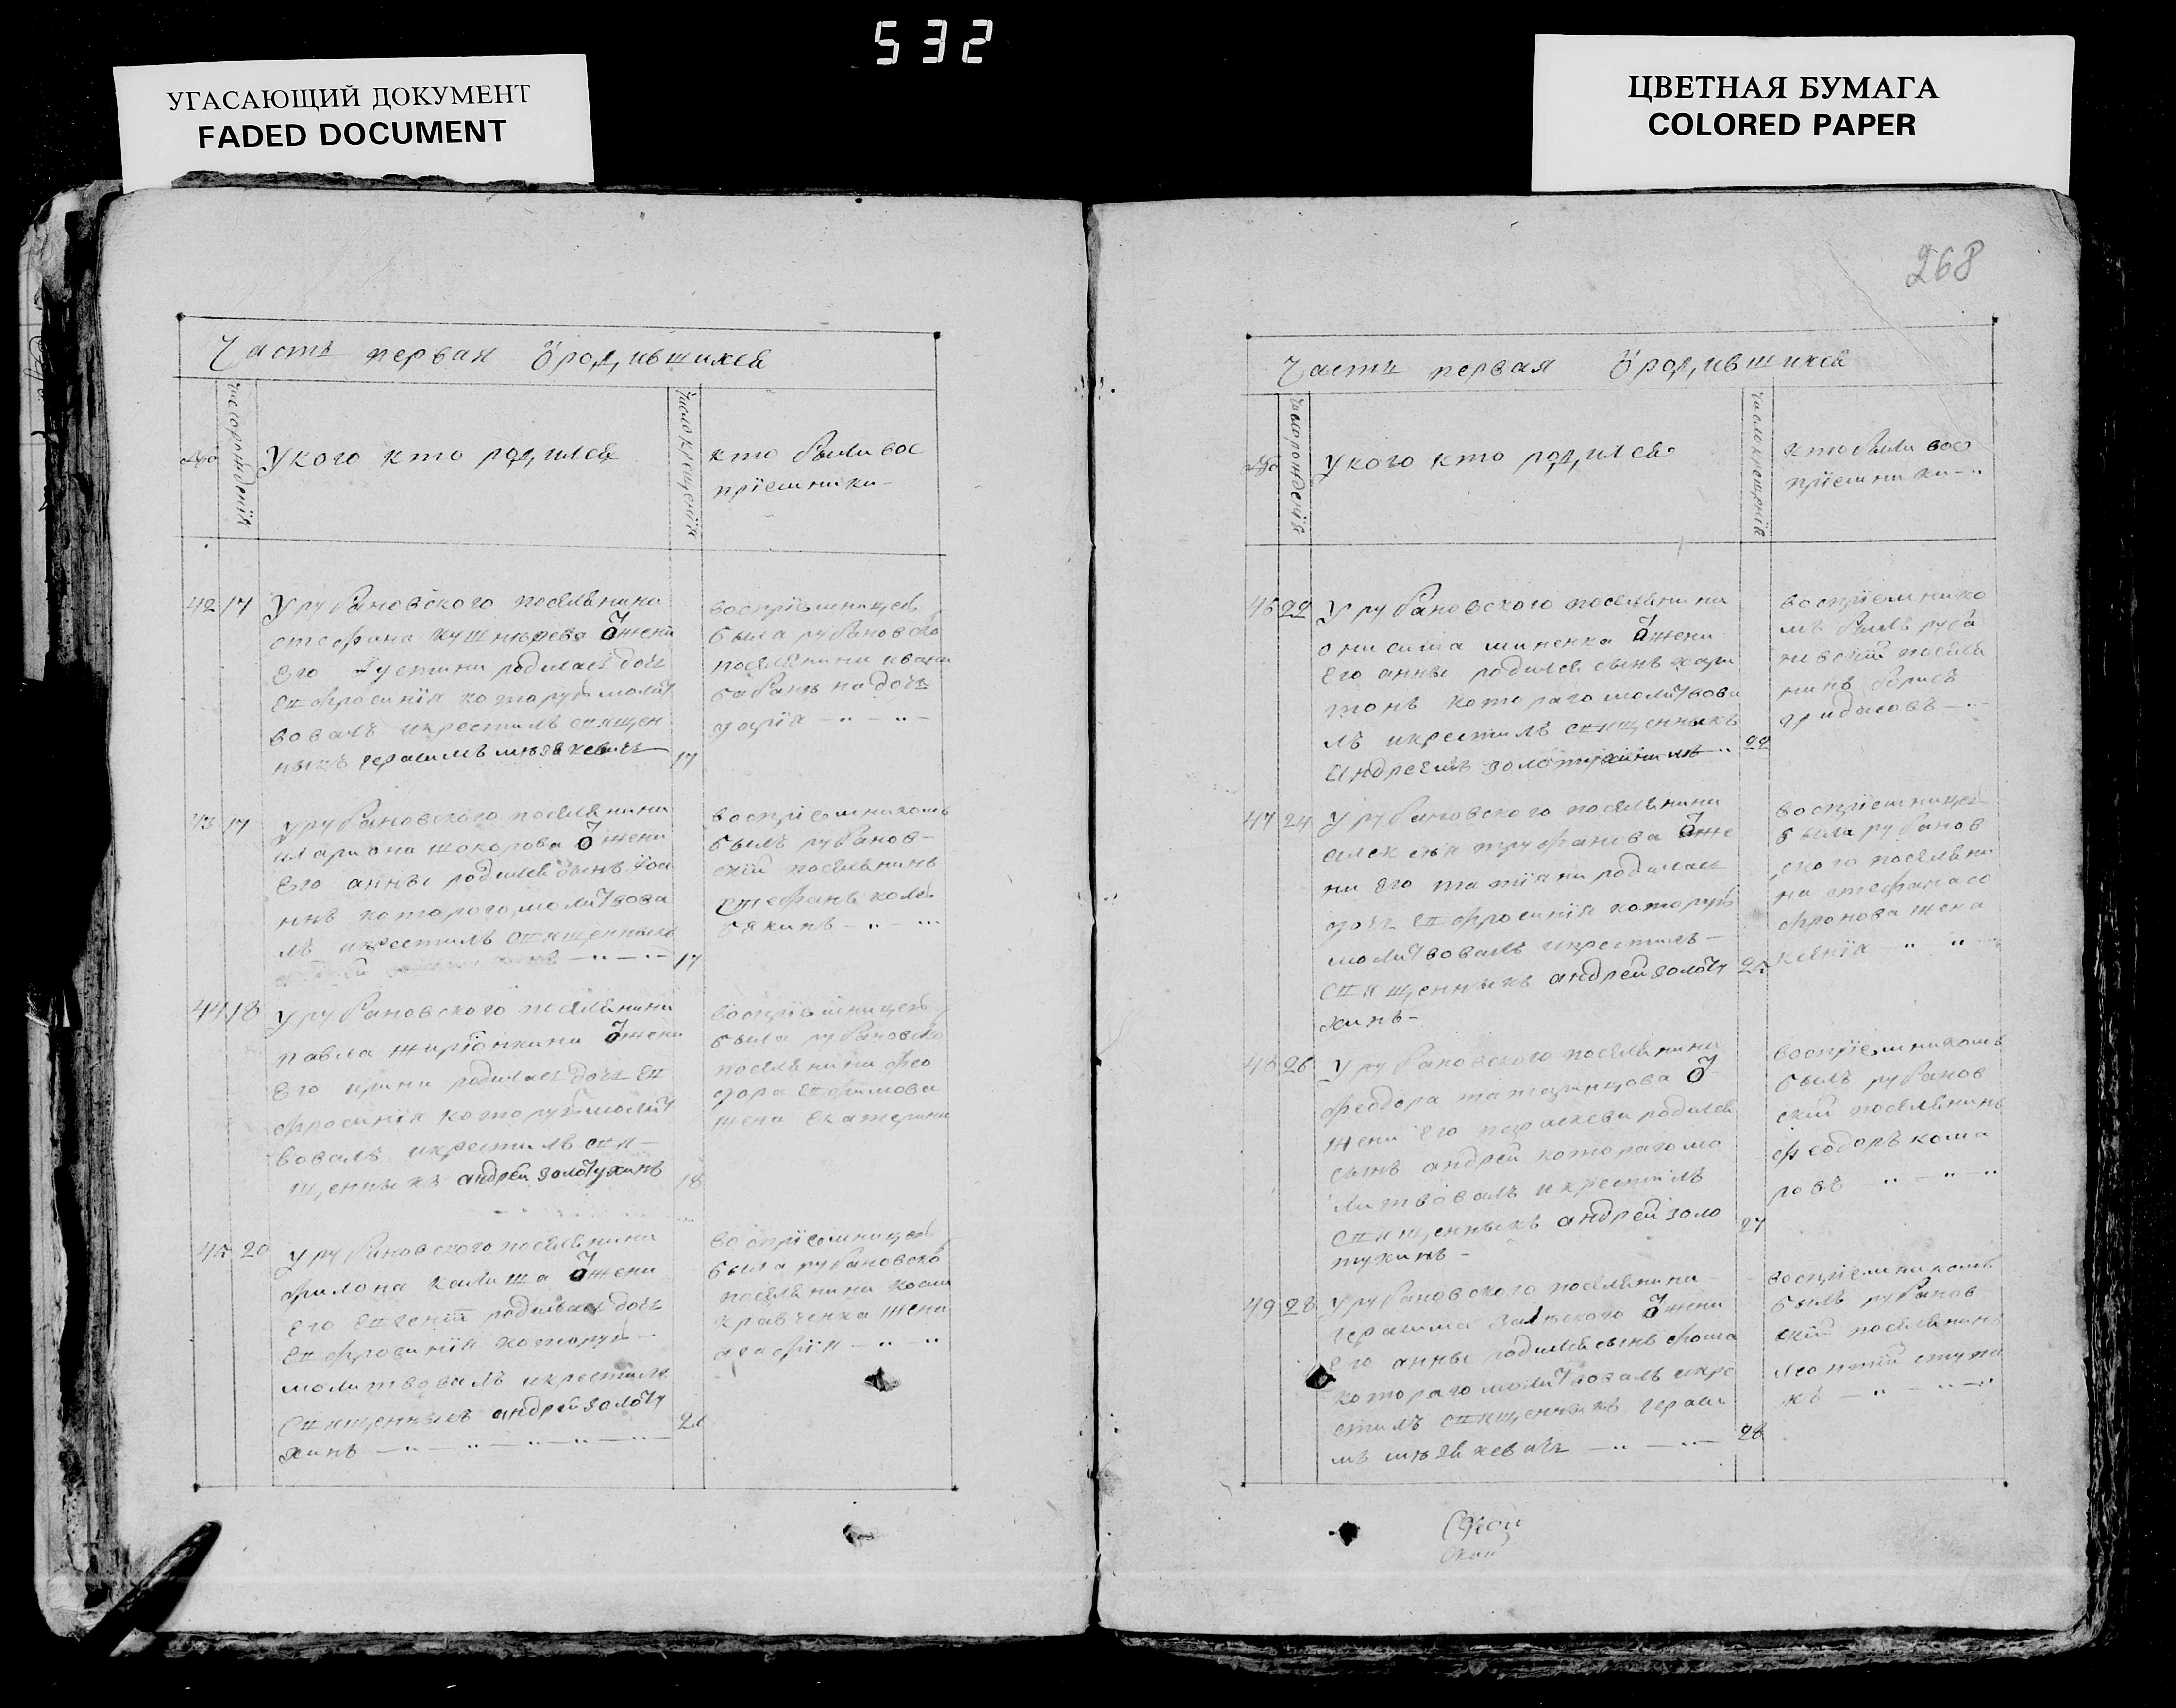 532
УГАСАЮЩИЙ ДОКУМЕНТ
FADED DOCUMENT
ЦВЕТНАЯ БУМАГА
COLORED PAPER
Часть первая ѿ родившихся
число рожденія
У кого кто родился
число крещенія
кто были вос
пріемники
42 17 У рубановского поселянина
стефана кушнѣрева ѿ жени
Его Густини родилась дочь
Евфросинія которую молит
вовалъ и крестилъ священ
никъ герасимъ мѣзѣкевичь 17
воспріемницею
была рубановско
поселянина ивана
бабана дочь
дарія
43 17 У рубановского поселянина
илариона шокорова ѿ жени
Его анны родился сынъ Іоа
ннъ которого молитвова
лъ и крестилъ священникъ
17
воспріемникомъ
былъ рубанов
скій поселянинъ
стефанъ коле
44 18 У рубановского поселянина
павла ѿ жени
Его ирини родилась дочь Ев
фросинія которую молит
вовалъ и крестилъ свя
щенникъ андрей золотухинъ 18
воспріемницею
была рубановско
поселянина фео
дора Евфимова
жена Екатерина
45 20 У рубановского поселянина
филона калиша ѿ жени
Его Евгеніи родилась дочь
Евфросинія которую
молитвовалъ и крестилъ
священникъ андрей золоту
хинъ
воспріемницею
была рубановско
поселянина косми
кравченка жена
агафія
268
Часть первая ѿ родившихся
число рожденія
У кого кто родился
число крещенія
кто были вос
пріемники
46 22 У рубановского поселянина
онисима миненка ѿ жени
Его анны родился сынъ хари
тонъ которагомолитвова
лъ и крестилъ священникъ
Андреемъ 22
воспріемнико
мъ былъ руба
невскій поселя
нинъ борисъ
гридасовъ
47 24 У рубановского поселянина
алексѣя труфанова ѿ же
ни Его татіяни родилась
дочь Евфросинія которую
молитвовалъ и крестилъ
священникъ андрей золоту 25
хинъ
воспріемницею
была рубанов
ского поселяни
на стефана со
фронова жена
ксенія
48 26 У рубановского поселянина
феодора татаринцова ѿ
жени Его параскеви родился
сынъ андрей которагомо
литвовалъ и крестилъ
священникъ андрей золо 27
тухинъ
воспріемникомъ
былъ рубанов
скій поселянинъ
феодоръ кома
ровъ
49 28 У рубановского поселянина
герасима ѿ жени
Его анны родился сынъ фома
котораго молитвовалъ икре
стилъ священникъ гераси
мъ мѣзѣкевичь 28
воспріемникомъ
былъ рубанов
скій поселянинъ
леонтій ступа
къ